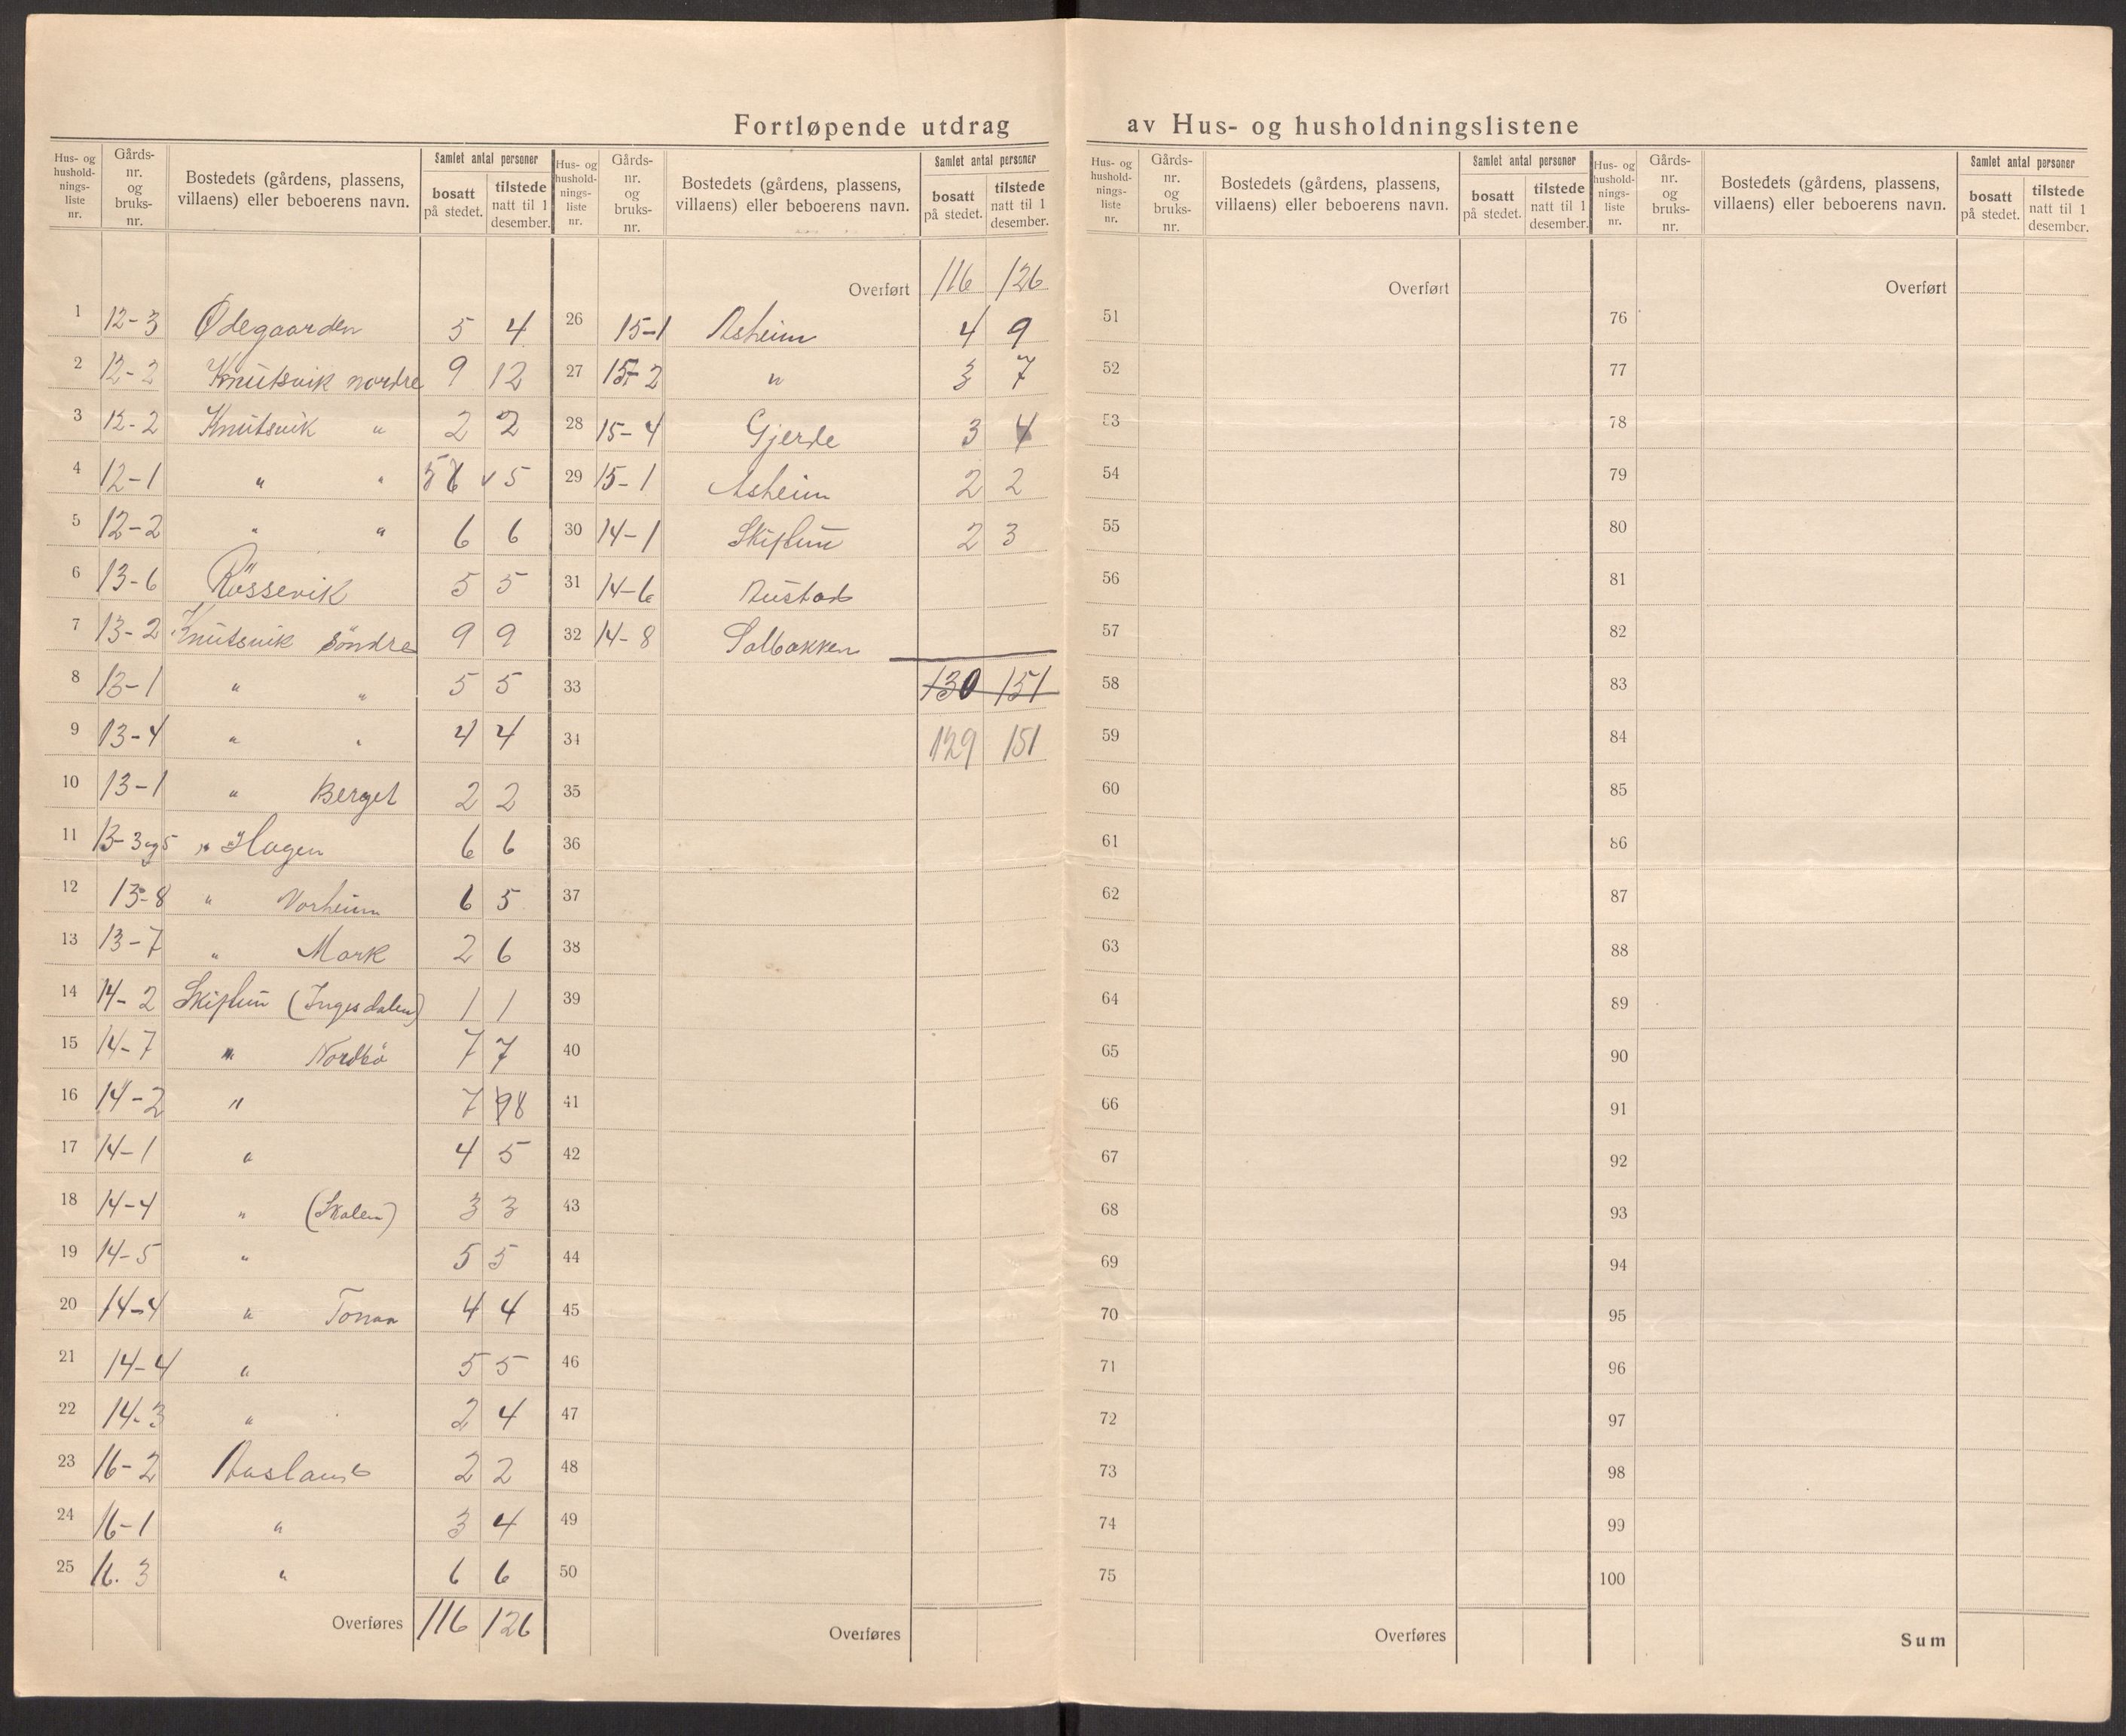 Fortløpende utdrag av Hus- og husholdningslistene
Hus- og hushold-nings-liste nr. Gårds-nr. og bruks-nr. Bostedets (gårdens, plassens, villaens) eller beboerens navn. Samlet antal personer bosatt på stedet. tilstede natt til 1 desember.
1 12-3 Ödegaarden 5 4
2 12-2 Knutsvik nordre 9 12
3 12-2 Knutsvik " 2 2
4 12-1 " " 5 6 v 5
5 12-2 " " 6 6
6 13-6 Rössevik 5 5
7 13-2 Knutsvik söndre 9 9
8 13-1 " " 5 5
9 13-4 " " 4 4
10 13-1 " Berget 2 2
11 13-3 og 5 " Hagen 6 6
12 13-8 " Varheim 6 5
13 13-7 " Mark 2 6
14 14-2 Skiftun (Ingesdalen) 1 1
15 14-7 " Nordbö 7 7
16 14-2 " 7 9 8
17 14-1 " 4 5
18 14-4 " (Skalen) 3 3
19 14-5 " 5 5
20 14-4 " 4 4
21 14-4 " 5 5
22 14-3 " 2 4
23 16-2 Aasland 2 2
24 16-1 " 3 4
25 16.3 " 6 6
Overføres 116 126
Hus- og hushold-nings-liste nr. Gårds-nr. og bruks-nr. Bostedets (gårdens, plassens, villaens) eller beboerens navn. Samlet antal personer bosatt på stedet. tilstede natt til 1 desember.
Overført 116 126
26 15-1 Asheim 4 9
27 15-2 " 3 7
28 15-4 Gjerde 3 4
29 15-1 Asheim 2 2
30 14-1 Skiftun 2 3
31 14-6
32 14-8 Solbakken
33 130 151
34 129 151
35
36
37
38
39
40
41
42
43
44
45
46
47
48
49
50
Overføres
Hus- og hushold-nings-liste nr. Gårds-nr. og bruks-nr. Bostedets (gårdens, plassens, villaens) eller beboerens navn. Samlet antal personer bosatt på stedet. tilstede natt til 1 desember.
Overført
51
52
53
54
55
56
57
58
59
60
61
62
63
64
65
66
67
68
69
70
71
72
73
74
75
Overføres
Hus- og hushold-nings-liste nr. Gårds-nr. og bruks-nr. Bostedets (gårdens, plassens, villaens) eller beboerens navn. Samlet antal personer bosatt på stedet. tilstede natt til 1 desember.
Overført
76
77
78
79
80
81
82
83
84
85
86
87
88
89
90
91
92
93
94
95
96
97
98
99
100
Sum